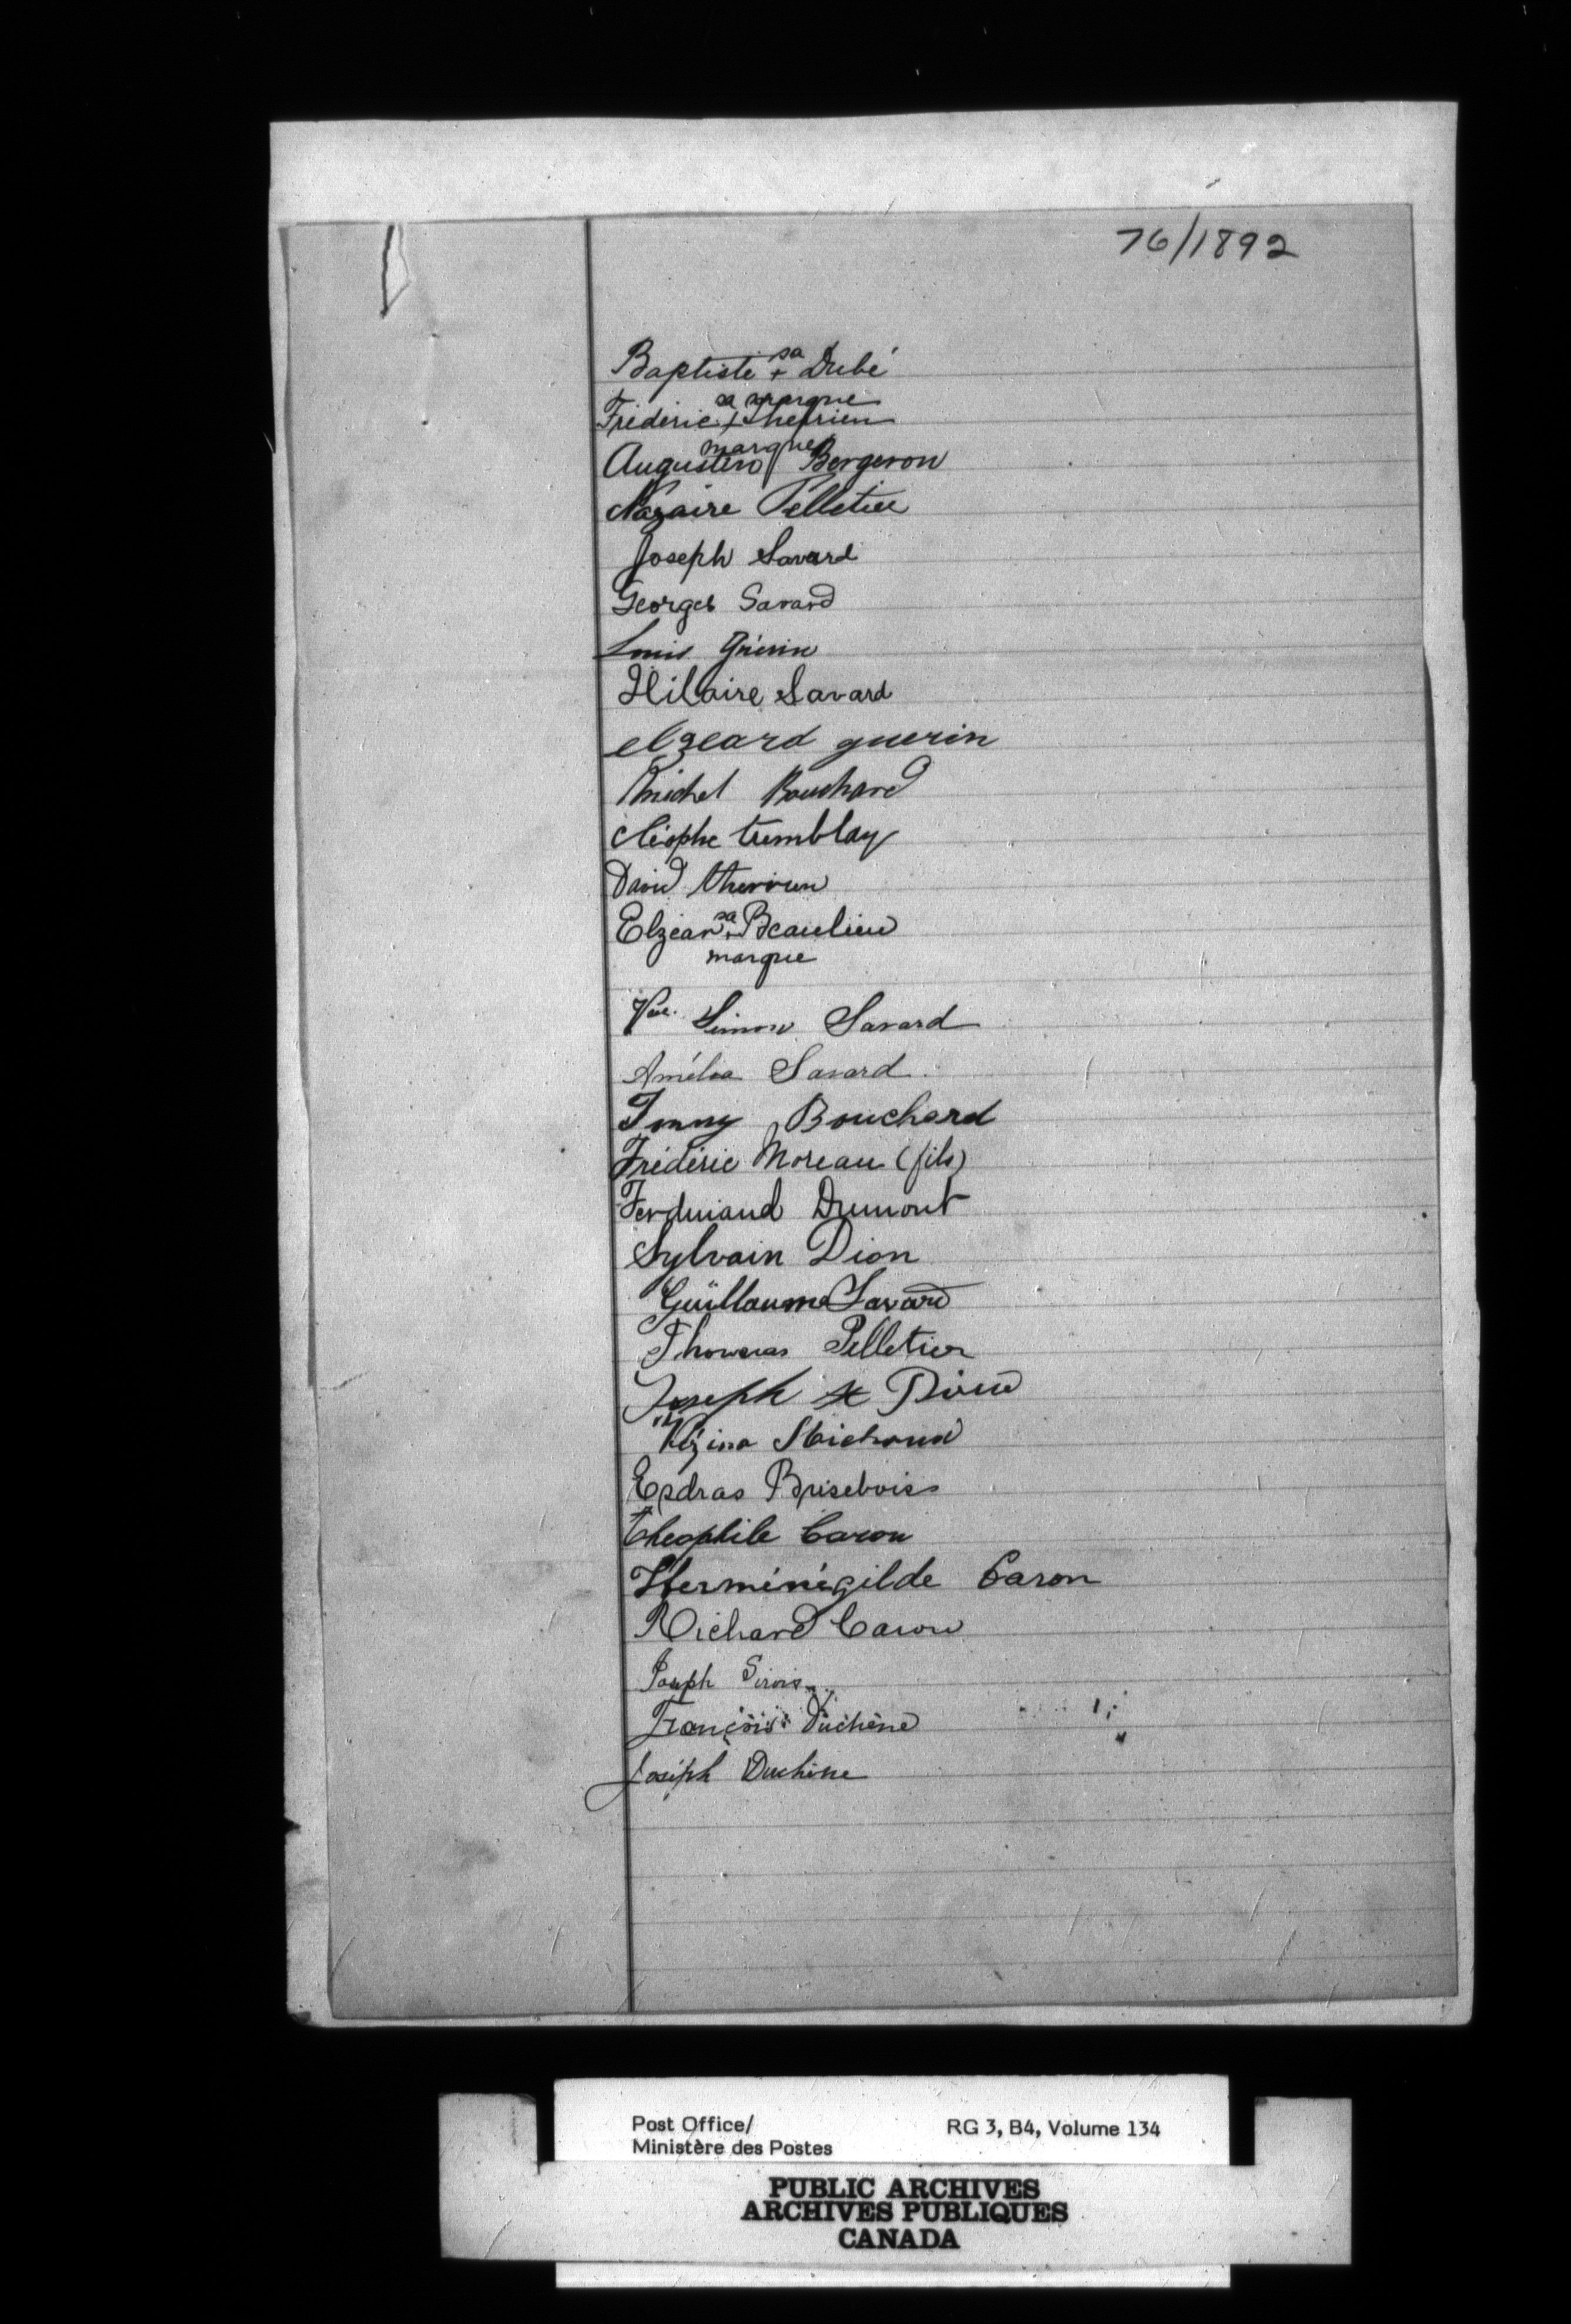 76/1892
Baptiste sa + Dubé
sa marque
Fréderic + Therrien
marque
Augustin Bergeron
Nazaire Pelletier
Joseph Savard
Georges Savard
Louis Guérin
Hilaire Savard
elzeard guerin
Michel Bouchard
Cléophe tremblay
David therrien
Elzear sa + Beaulieu
marque
Vve. Simon Savard
Amélia Savard
Bouchard
Frédéric Moreau (fils)
Ferdinand Dumont
Sylvain Dion
Guillaume Savard
Thomas Pelletier
Joseph Dion
Régina Michaud
Esdras Brisebois
théophile Caron
Herménégilde Caron
Richard Caron
Joseph Sirois
François Duchêne
Joséph Duchêne
Post Office/
Ministère des Postes
RG 3, B4, Volume 134
PUBLIC ARCHIVES
ARCHIVES PUBLIQUES
CANADA